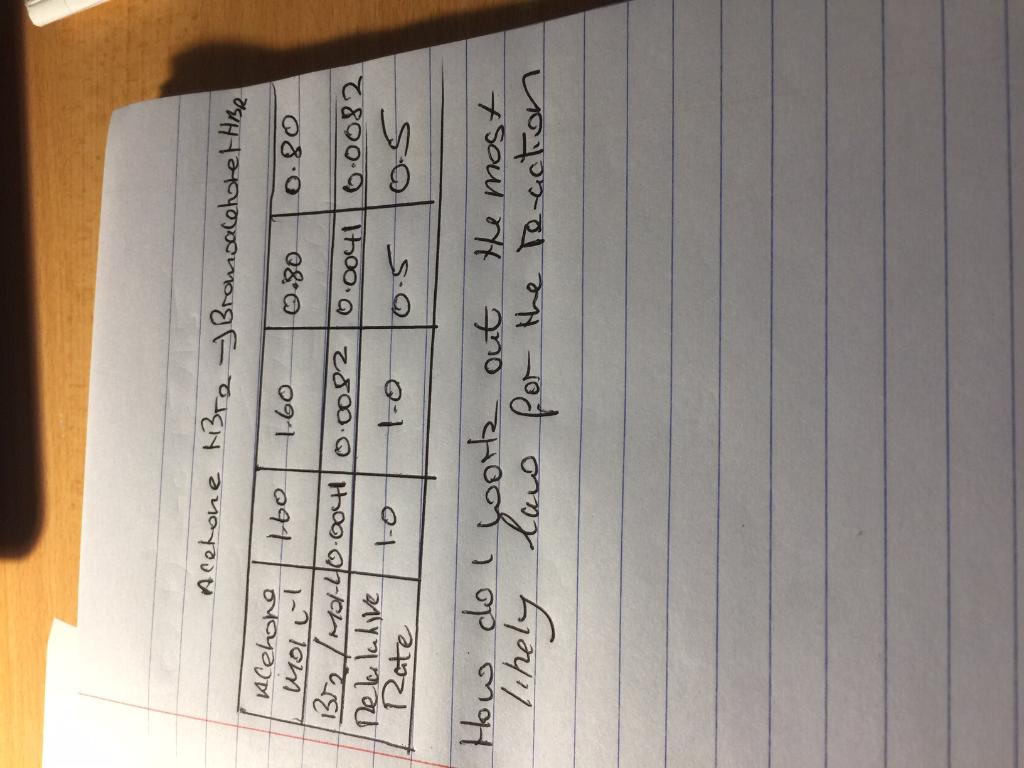 Acetone + Br2 → Bromoacetone + HBr
Acetone 1.60 1.60 0.80 0.80
mol L-1
Br2/mol-L 0.0041 0.0082 0.0041 0.0082
Relative 1.0 1.0 0.5 0.5
Rate
How do I work out the most
likely law for the re-action